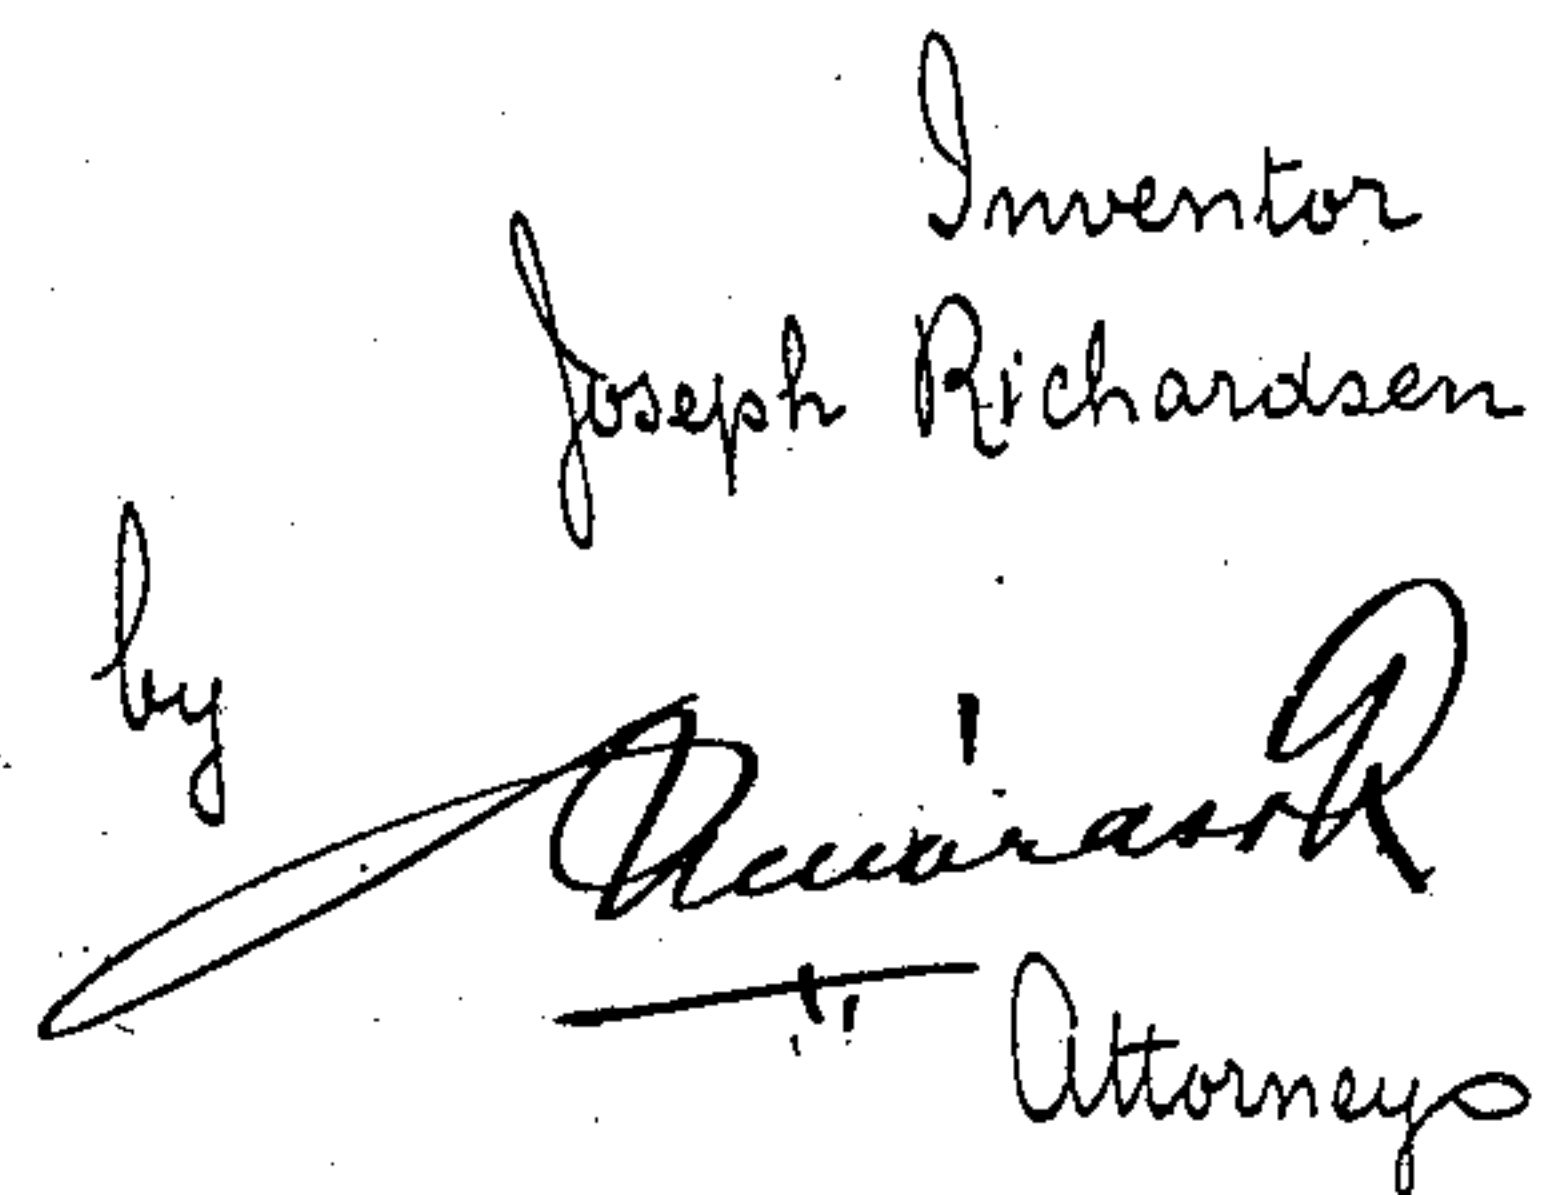 Inventor
Joseph Richardsen
by
Attorneys